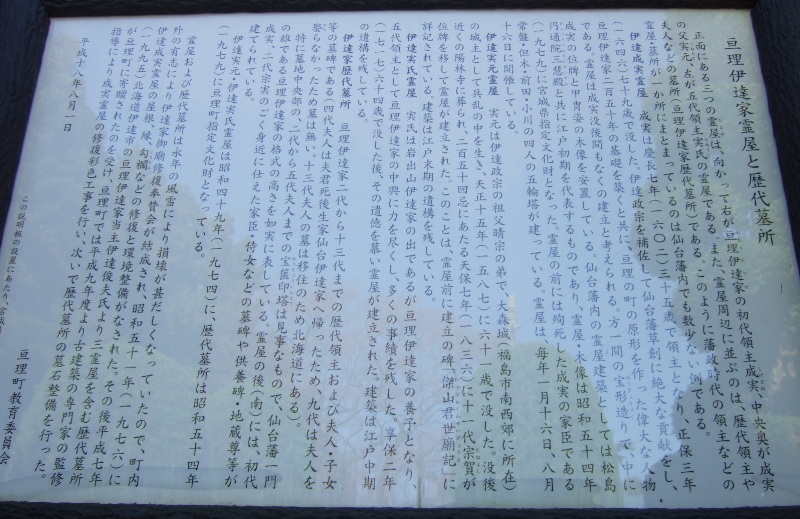 亘理伊達家霊屋と歴代墓所
正面にある三つの霊屋は、向かって右が亘理伊達家の初代領主成実、中央奥が成実
の父実元、左が五代領主実氏の霊屋である。また、霊屋周辺に並ぶのは、歴代領主や
夫人などの墓所(亘理伊達家歴代墓所)である。このように藩政時代の領主などの
霊屋・墓所が一か所にまとまっているのは仙台藩内でも数少ない例である。
伊達成実霊屋 成実は慶長七年(一六〇二)三十五歳で領主となり、正保三年
(一六四六)七十九歳で没した。伊達政宗を補佐して仙台藩草創に絶大な貢献をし、
亘理伊達家二百五十年の基礎を築くと共に、亘理の町の原形を作った偉大な人物
である。霊屋は成実没後間もなくの建立と考えられる。方一間の宝形造りで、中に
成実の位牌と甲冑姿の木像を安置している。仙台藩内の霊屋建築としては松島
円通院三慧殿と共に江戸初期を代表するものであり、霊屋・木像は昭和五十四年
(一九七九)に宮城県指定文化財となった。霊屋の前には殉死した成実の家臣である
常盤・但木・前田・小川の四人の五輪塔が建っている。霊屋は、毎年一月十六日、八月
十六日に開帳している。
伊達実元霊屋 実元は伊達政宗の祖父晴宗の弟で、大森城(福島市南西郊に所在)
の城主として兵乱の中を生き、天正十五年(一五八七)に六十一歳で没した。没後
近くの陽林寺に葬られ、二百五十回忌にあたる天保七年(一八三六)に十一代宗賀が
位牌を移して霊屋が建立された。このことは、霊屋前に建立の碑「傑山君世廟記」に
詳記されている。建築は江戸末期の遺構を残している。
伊達実氏霊屋 実氏は岩出山伊達家の出であるが亘理伊達家の養子となり、
五代領主として亘理伊達家の中興に力を尽くし、多くの事績を残した。享保二年
(一七一七)六十四歳で没した後、その遺徳を慕い霊屋が建立された。建築は江戸中期
の遺構を残している。
伊達家歴代墓所 亘理伊達家二代から十三代までの歴代領主および夫人・子女
等の墓碑である(四代夫人は夫君死後生家仙台伊達家へ帰ったため、九代は夫人を
娶らなかったため墓は無い、十三代夫人の墓は移住のため北海道にある)。
特に墓地中央部の、二代から五代夫人までの宝篋印塔は見事なもので、仙台藩一門
の雄である亘理伊達家の格式の高さを如実に表している。霊屋の後(南)には、初代
成実、二代宗実のごく身近に仕えた家臣・侍女などの墓碑や供養碑・地蔵尊等が
建てられている。
伊達実元・伊達実氏霊屋は昭和四十九年(一九七四)に、歴代墓所は昭和五十四年
(一九七九)に亘理町指定文化財となっている。
霊屋および歴代墓所は永年の風雪により損壊が甚だしくなっていたので、町内
外の有志により伊達家御廟修復奉賛会が結成され、昭和五十一年(一九七六)に
伊達成実霊屋の屋根、縁、勾欄などの修復と環境整備がなされた。その後平成七年
(一九九五)北海道伊達市の亘理伊達家当主伊達俊夫氏より三霊屋を含む歴代墓所
が亘理町に寄贈されたのを受け、亘理町では平成九年度より古建築の専門家の監修
指導により成実霊屋の修復彩色工事を行い、次いで歴代墓所の墓石整備を行った。
平成十八年八月一日
亘理町教育委員会
この説明板の設置にあたり、宮城県